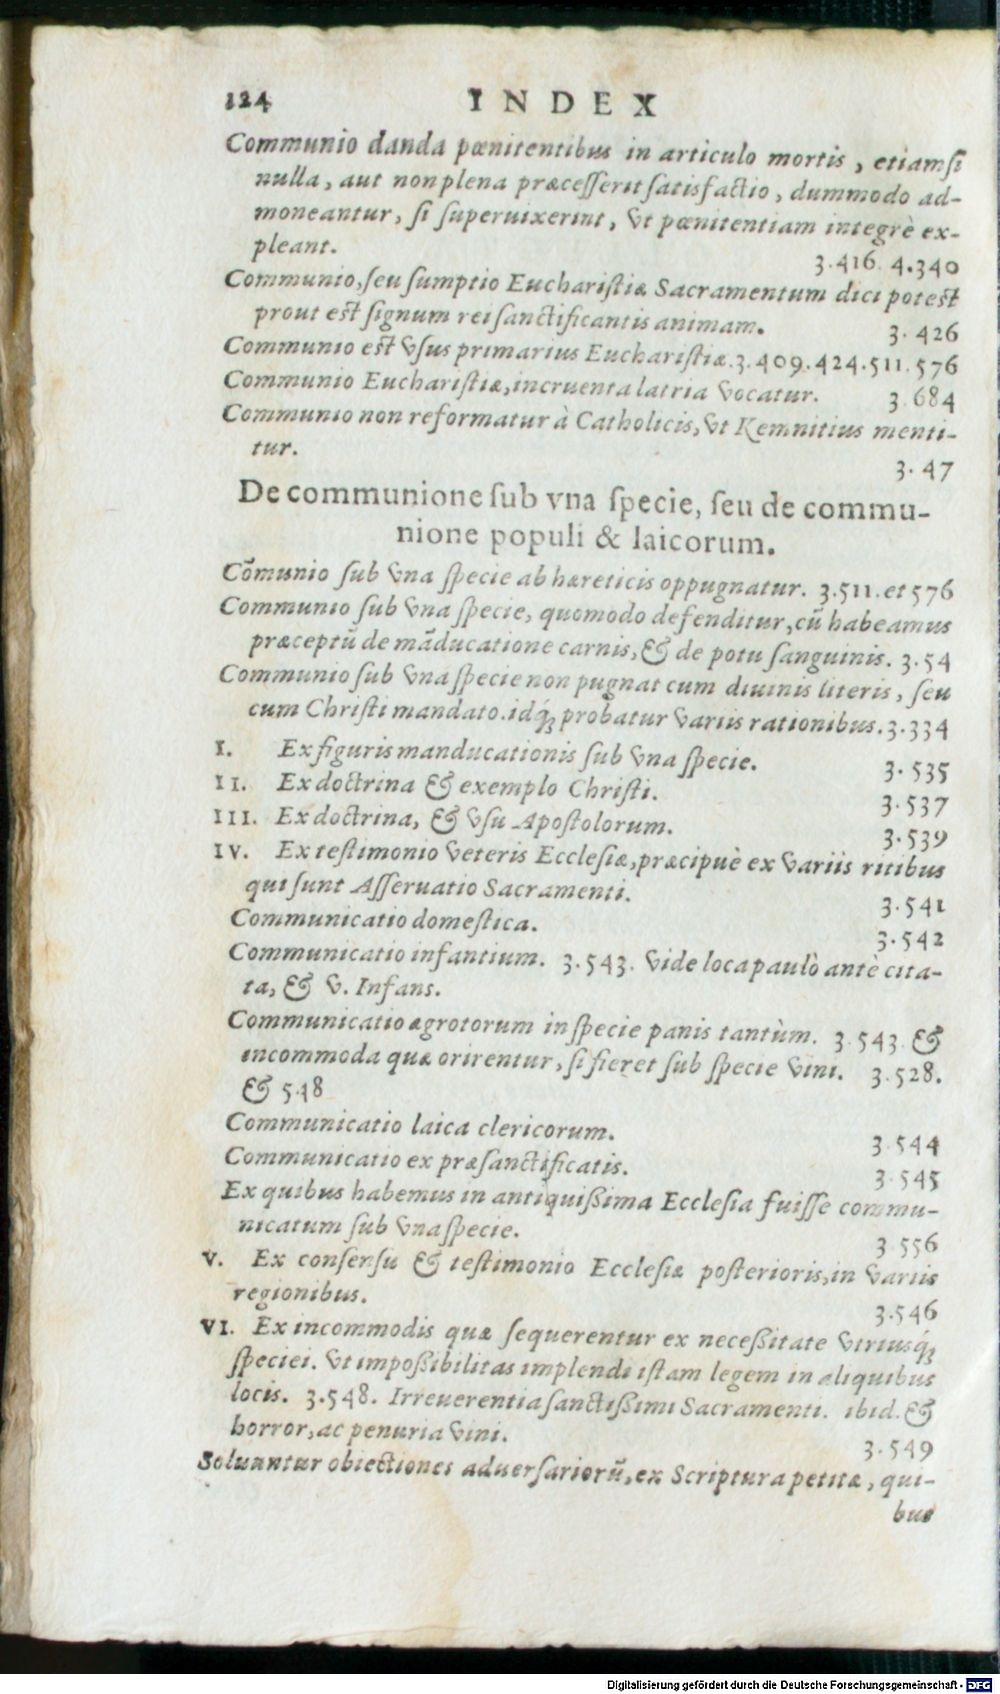 124 INDEX
Communio danda pœnitentibus in articulo mortis, etiamsi
nulla, aut non plena præcesserit satisfactio, dummodo ad-
moneantur, si superuixerint, vt pœnitentiam integrè ex-
pleant. 3.416. 4.340
Communio, seu sumptio Eucharistiæ Sacramentum dici potest
prout est signum rei sanctificantis animam. 3.426
Communio est vsus primarius Eucharistiæ. 3.409.424.511.576
Communio Eucharistiæ, incruenta latria vocatur. 3.684
Communio non reformatur à Catholicis, vt Kemnitius menti-
tur. 3.47
De communione sub vna specie, seu de commu-
nione populi & laicorum.
Cōmunio sub vna specie ab hæreticis oppugnatur. 3.511. et 576
Communio sub vna specie, quomodo defenditur, cū habeamus
præceptū de māducatione carnis, & de potu sanguinis. 3.54
Communio sub vna specie non pugnat cum diuinis literis, seu
cum Christi mandato. idq́ꝫ probatur variis rationibus. 3.334
I. Ex figuris manducationis sub vna specie. 3.535
II. Ex doctrina & exemplo Christi. 3.537
III. Ex doctrina, & vsu Apostolorum. 3.539
IV. Ex testimonio veteris Ecclesiæ, præcipuè ex variis ritibus
qui sunt Asseruatio Sacramenti. 3.541
Communicatio domestica. 3.542
Communicatio infantium. 3.543. vide loca paulò antè cita-
ta, & v. Infans.
Communicatio ægrotorum in specie panis tantùm. 3.543. &
incommoda quæ orirentur, si fieret sub specie vini. 3.528.
& 548
Communicatio laica clericorum. 3.544
Communicatio ex præsanctificatis. 3.545
Ex quibus habemus in antiquißima Ecclesia fuisse commu-
nicatum sub vna specie. 3.556
V. Ex consensu & testimonio Ecclesiæ posterioris, in variis
regionibus. 3.546
VI. Ex incommodis quæ sequerentur ex neceßitate vtriusq́ꝫ
speciei. vt impoßibilitas implendi istam legem in aliquibus
locis. 3.548. Irreuerentia sanctißimi Sacramenti. ibid. &
horror, ac penuria vini. 3.549
Soluuntur obiectiones aduersariorū, ex Scriptura petitæ, qui-
bus
Digitalisierung gefördert durch die Deutsche Forschungsgemeinschaft - DFG